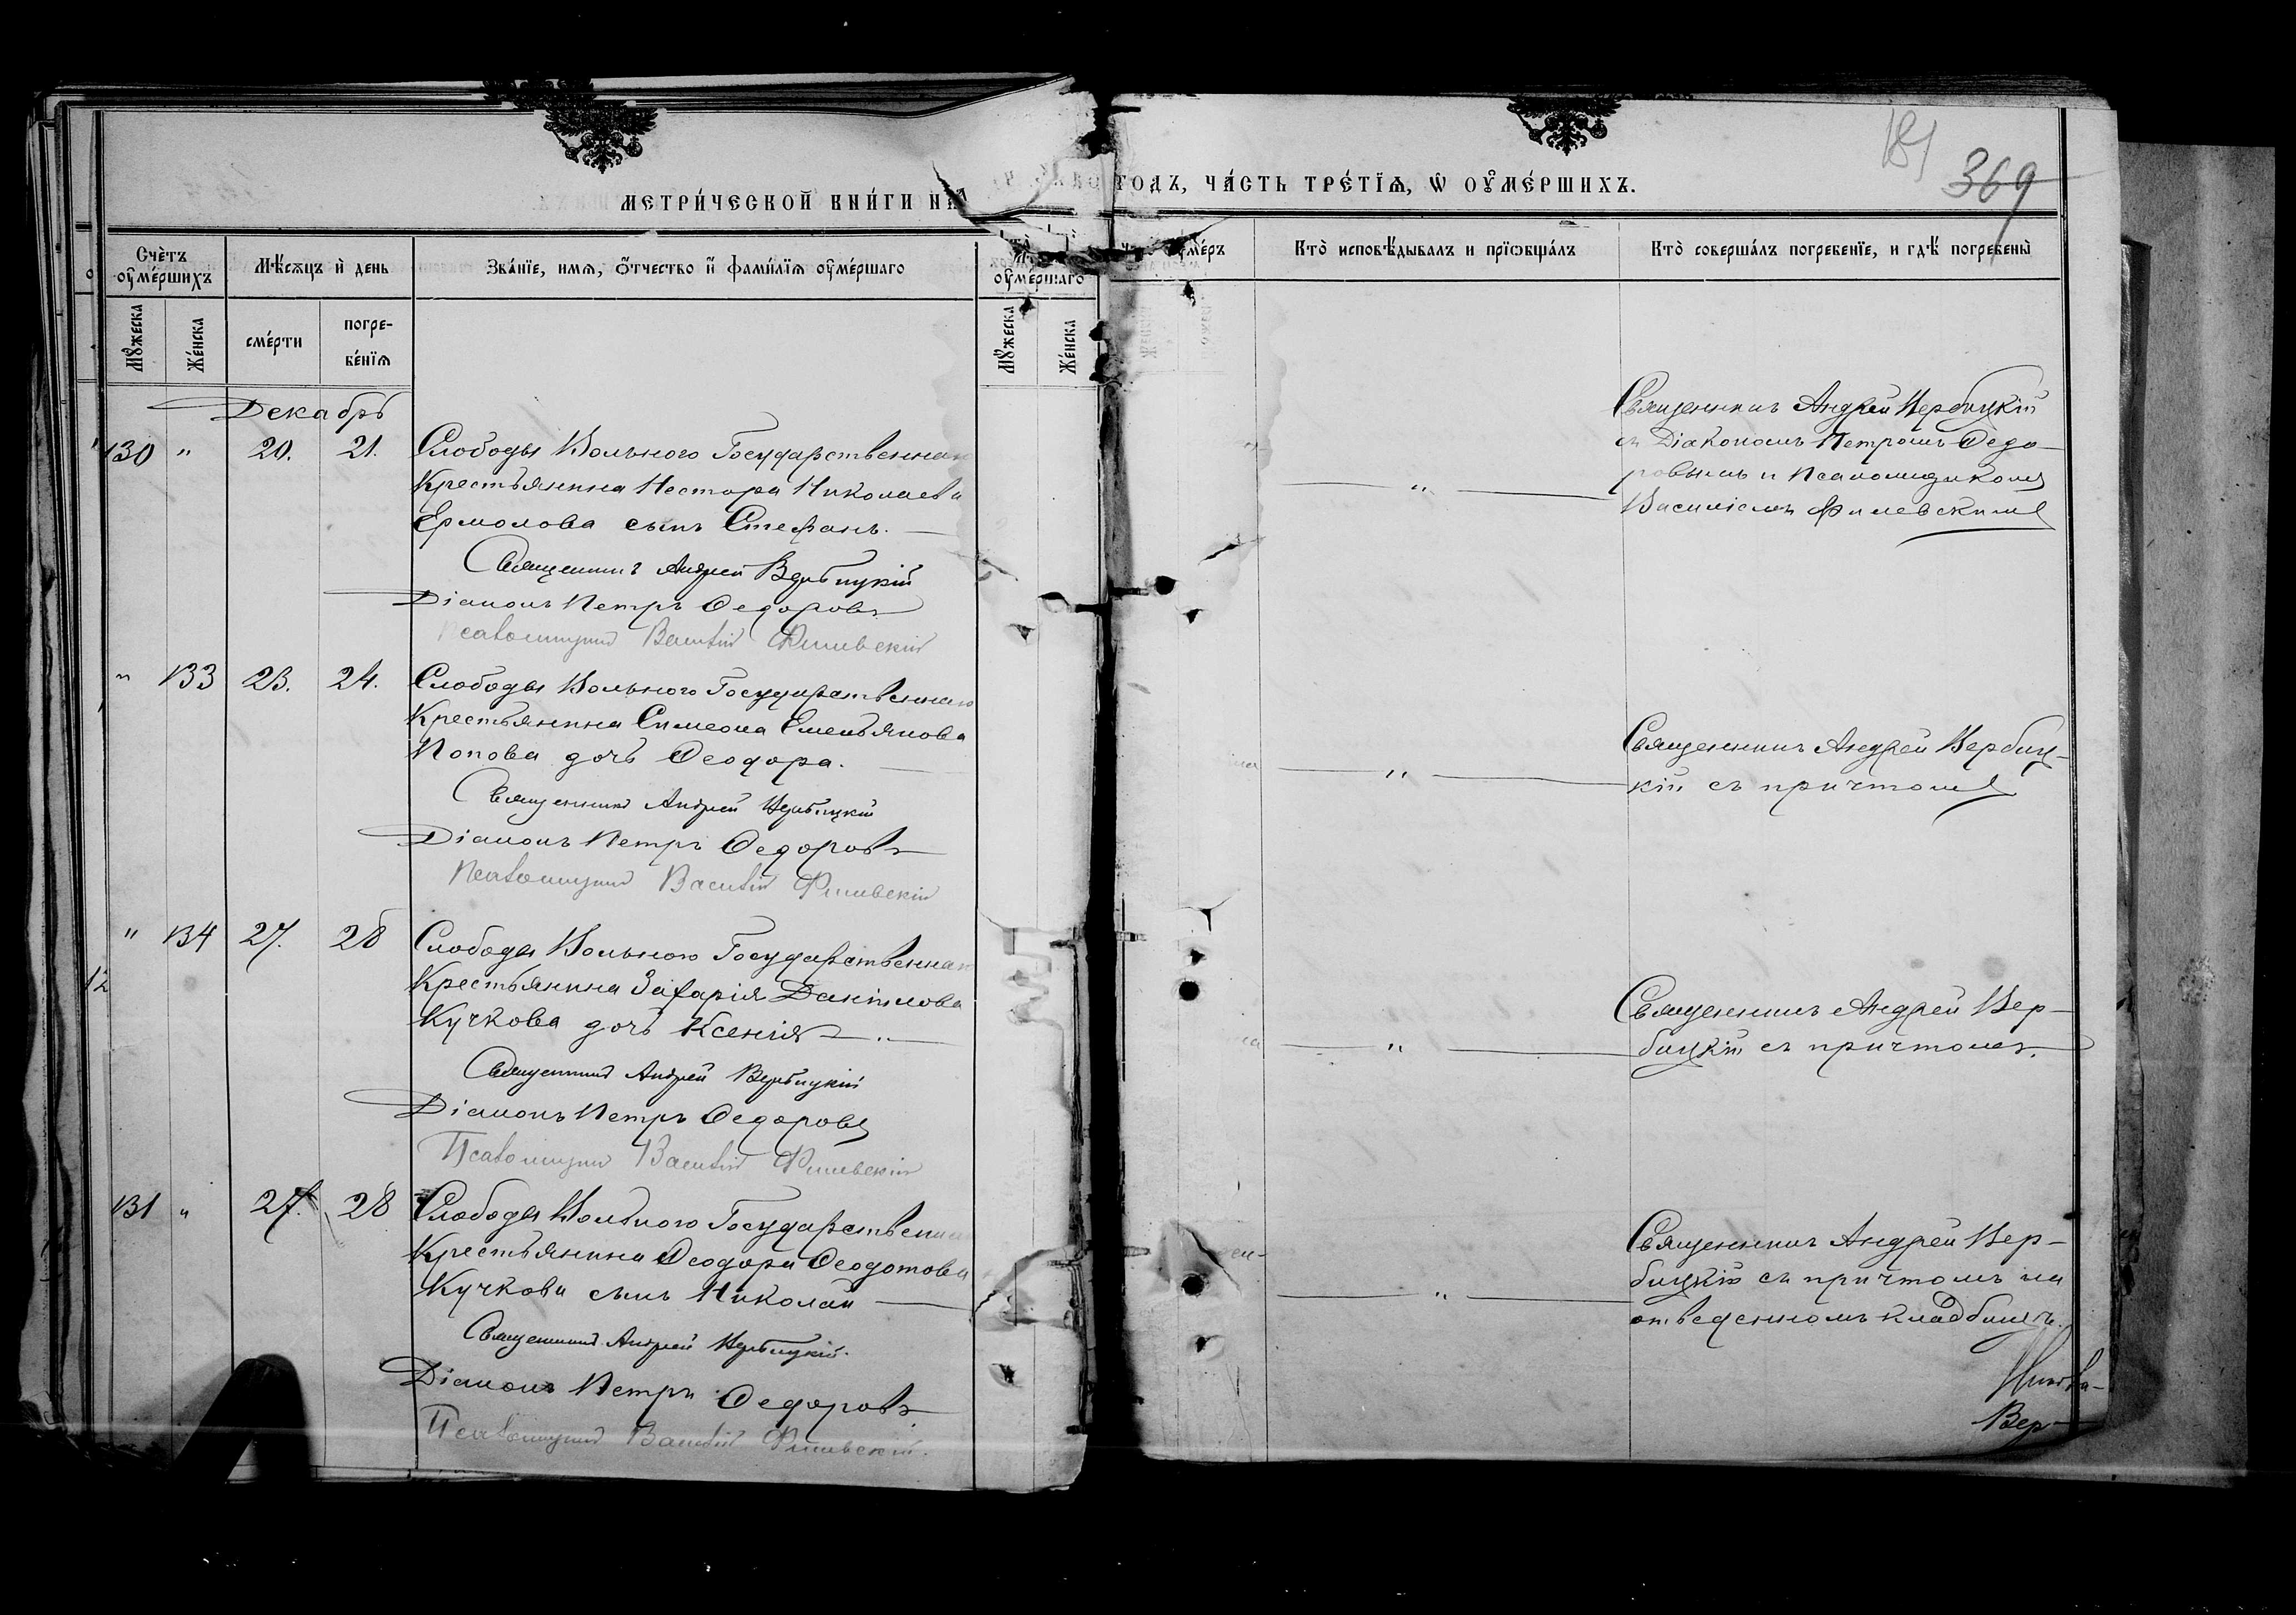 181
369
МЕТРИ́ЧЕСКОЙ КНИ́ГИ НА
ГОДЪ, ЧА́СТЬ ТРЕ́ТЇѦ, Ѿ ОУ҆МЕ́РШИХЪ.
Счѐтъ оу҆ме́ршихъ
Мѣ́сѧцъ и҆ день
Зва́нїе, имѧ, ѻ҆́тчество и҆ фами́лїѧ оу҆ме́ршаго
оу҆ме́ршаго
Кто̀ исповѣ́дывалъ и прїѡбща́лъ
Кто̀ соверша́лъ погребенїе, и гдѣ̀ погребены̀
Мꙋ́жеска
Же́нска
сме́рти
погре-
бе́нїѧ
Мꙋ́жеска
Же́нска
Декабрь
130 " 20. 21. Слободы Вольного Государственнаго
Крестьянина Нестора Николаева
Ермолова сынъ Стефанъ.
Священникъ Андрей Вербицкій
Діаконъ Петръ Ѳедоровъ
Псаломщикъ Василій Филевскій
Священникъ Андрей Вербицкій
съ Діакономъ Петромъ Ѳедо-
ровымъ и Псаломщикомъ
Василіемъ Филевскимъ
" 133 23. 24. Слободы Вольного Государственнаго
Крестьянина Симеона Емельянова
Попова дочь Ѳеодора.
Священникъ Андрей Вербицкій
Діаконъ Петръ Ѳедоровъ
Псаломщикъ Василій Филевскій
Священникъ Андрей Вербиц-
кій съ причтомъ
" 134 27. 28 Слободы Вольного Государственнаго
Крестьянина Захарія Даніилова
Кучкова дочь Ксенія
Священникъ Андрей Вербицкій
Діаконъ Петръ Ѳедоровъ
Псаломщикъ Василій Филевскій
Священникъ Андрей Вер-
бицкій съ причтомъ.
131 " 27. 28 Слободы Вольного Государственна
Крестьянина Ѳеодора Ѳеодотова
Кучкова сынъ Николай
Священникъ Андрей Вербицкій.
Діаконъ Петръ Ѳедоровъ
Псаломщикъ Василій Филевскій.
Священникъ Андрей Вер-
бицкій съ причтомъ на
отведенномъ кладбищѣ.
Вер
12